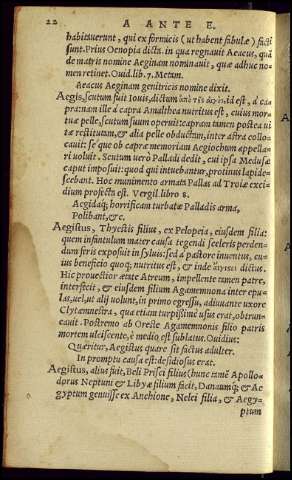 22 A ANTE E.
habitauerunt, qui ex formicis (ut habent fabulæ) facti
sunt. Prius Oenopia dicta. in qua regnauit Aeacus, quā
de matris nomine Aeginam nominauit, quæ adhuc no-
men retinet. Ouid. lib. 7. Metam.
Aeacus Aeginam genitricis nomine dixit.
Aegis, scutum fuit Iouis, dictum ἀπὸ τῆς αἰγὸς, id est, à ca
pra: nam ille à capra Amalthea nutritus est, cuius mor-
tuæ pelle, scutum suum operuit: capram tamen postea ui
tæ restitutam, & alia pelle obductam, inter astra collo-
cauit: se que ob capræ memoriam Aegiochum appella-
ri uoluit. Scutum uerò Palladi dedit, cui ipsa Medusæ
caput imposuit: quod qui intuebantur, protinus lapide-
scebant. Hoc munimento armata Pallas ad Troiæ exci-
dium profecta est. Vergil libro 8.
Aegidaq; horrificam turbatæ Palladis arma,
Polibant, &c.
Aegistus, Thyestis filius, ex Pelopeia, eiusdem filia:
quem infantulum mater causa tegendi sceleris perden-
dum feris exposuit in syluis: sed à pastore inuentus, cu-
ius beneficio quoq; nutritus est, & inde dictus.
Hic prouectior ætate Atreum, impellente tamen patre,
interfecit, & eiusdem filium Agamemnona inter epu-
las, uel, ut alij uolunt, in primo egressu, adiuuante uxore
Clytæmnestra, qua etiam turpissimè usus erat, obtrun-
cauit. Postremo ab Oreste Agamemnonis filio patris
mortem ulciscente, è medio est sublatus. Ouidius:
Quæritur, Aegistus quare sit factus adulter.
In promptu causa est: desidiosus erat.
Aegistus, alius fuit, Beli Prisci filius (hunc tamē Apollo-
dorus Neptuni & Libyæ filium facit, Danaumq; & Ae
gyptum genuisse ex Anchione, Nelei filia, & Aegy-
ptum